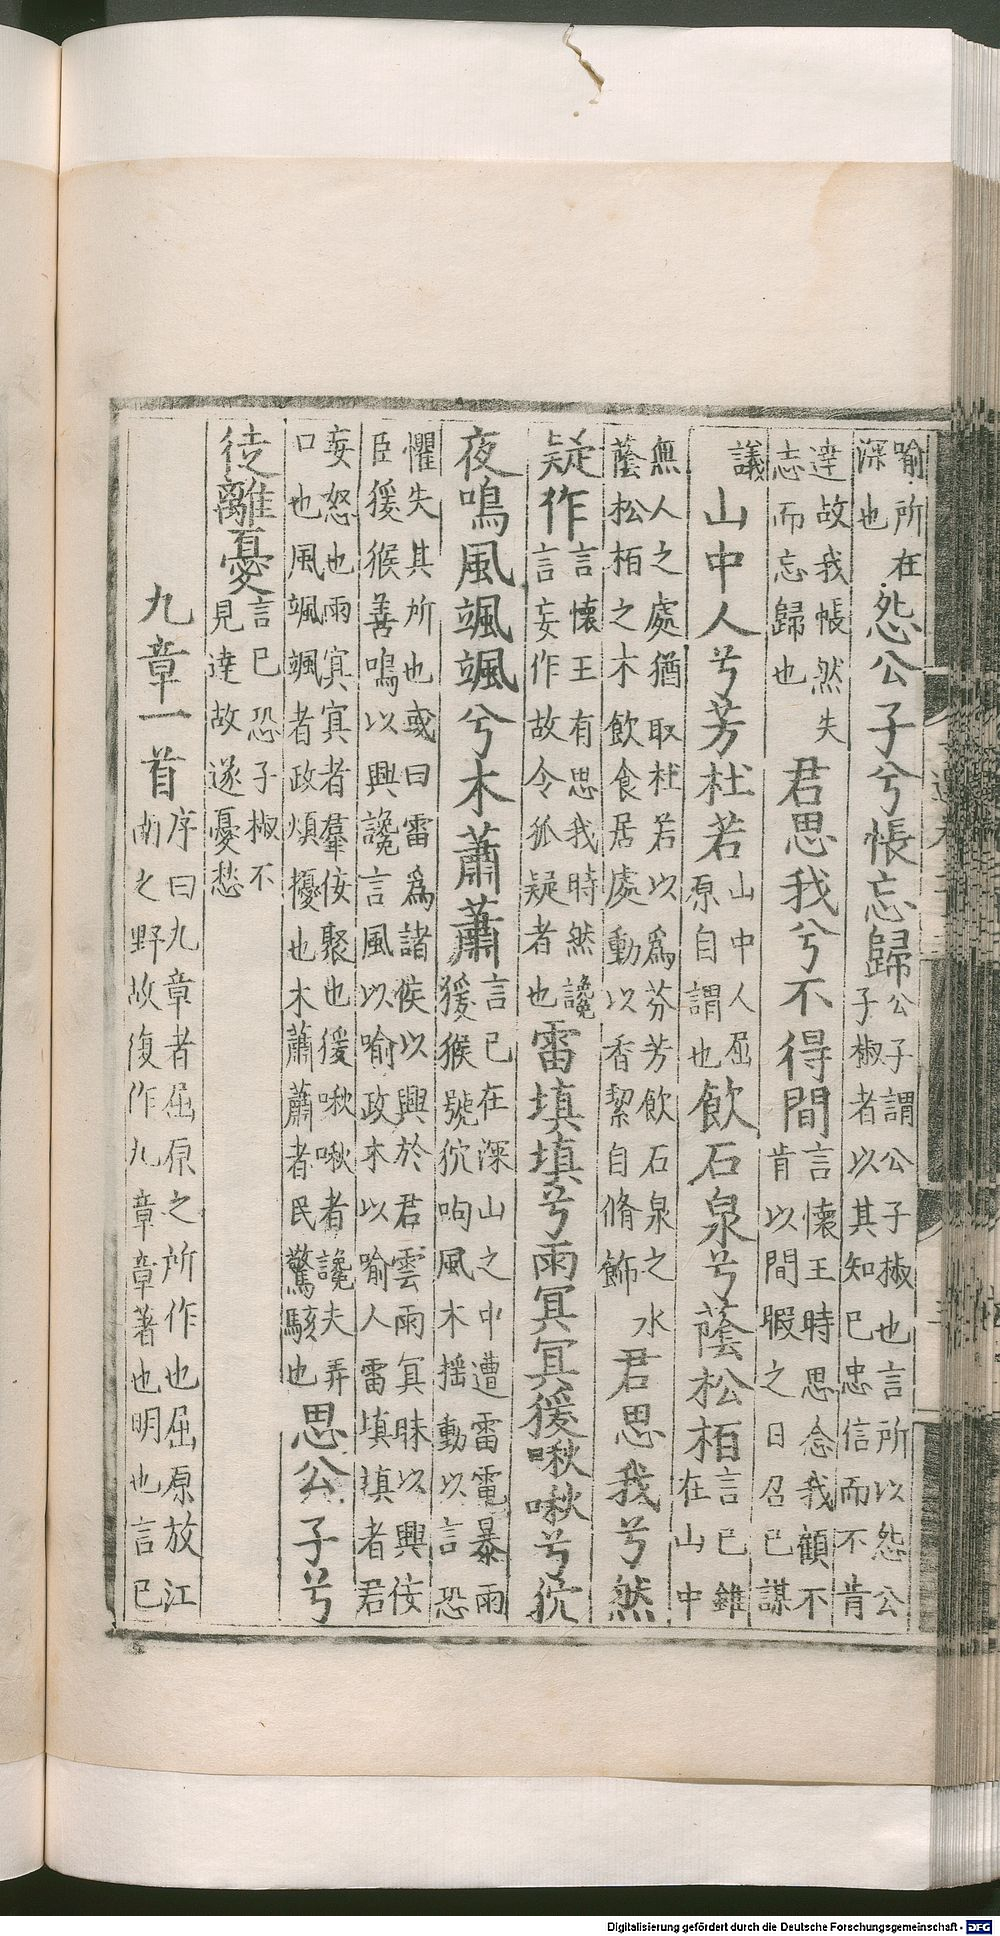 喻所在深也怨公子兮悵忘歸公子謂公子椒也言所以怨公子椒者以其知已忠信而不肯
達故我悵然失志而忘歸也君思我兮不得間言懷王時思念我顧不肯以間暇之日召已謀
議山中人兮芳杜若山中人屈原自謂也飲石泉兮蔭松栢言已雖在山中
無人之處猶取杜若以為芬芳飲石泉之水蔭松栢之木飲食居處動以香絜自脩飾君思我兮然
疑作言懷王有思我時然讒言妄作故令狐疑者也雷填填兮雨冥冥猨啾啾兮狖
夜鳴風颯颯兮木蕭蕭言已在深山之中遭雷電暴雨猨猴號狖呴風木搖動以言恐
懼失其所也或曰雷為諸侯以興於君雲雨冥昧以興佞臣猨猴善鳴以興讒言風以喻政木以喻人雷填填者君
妄怒也雨冥冥者羣佞聚也猨啾啾者讒夫弄口也風颯颯者政煩擾也木蕭蕭者民驚駭也思公子兮
徒離憂言已恐子椒不見達故遂憂愁
九章一首序曰九章者屈原之所作也屈原放江南之野故復作九章章著也明也言已
Digitalisierung gefördert durch die Deutsche Forschungsgemeinschaft - DFG